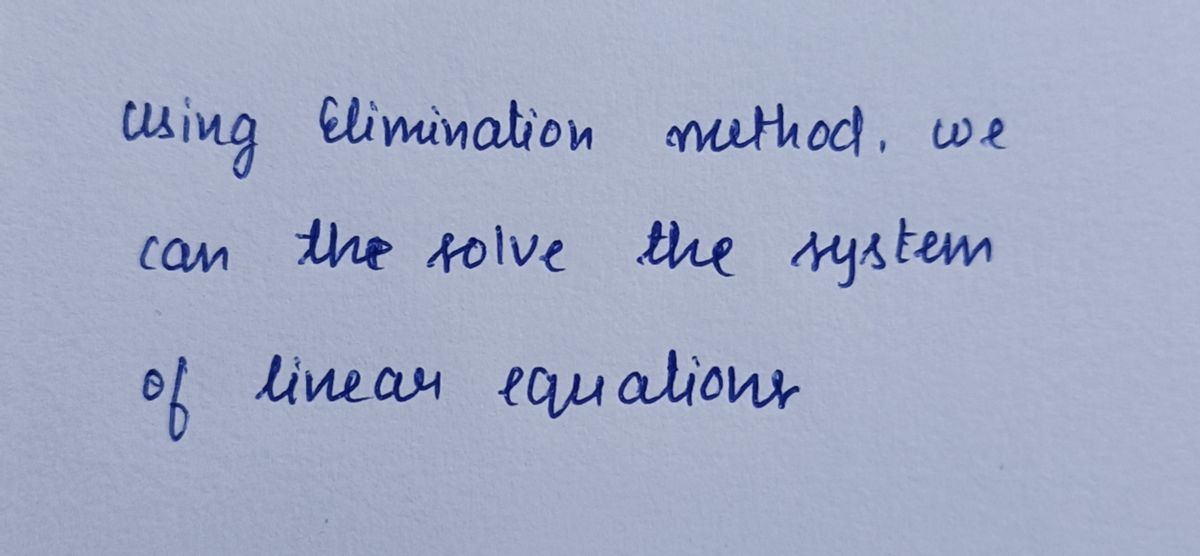 using Elimination method, we
can the solve the system
of linear equations